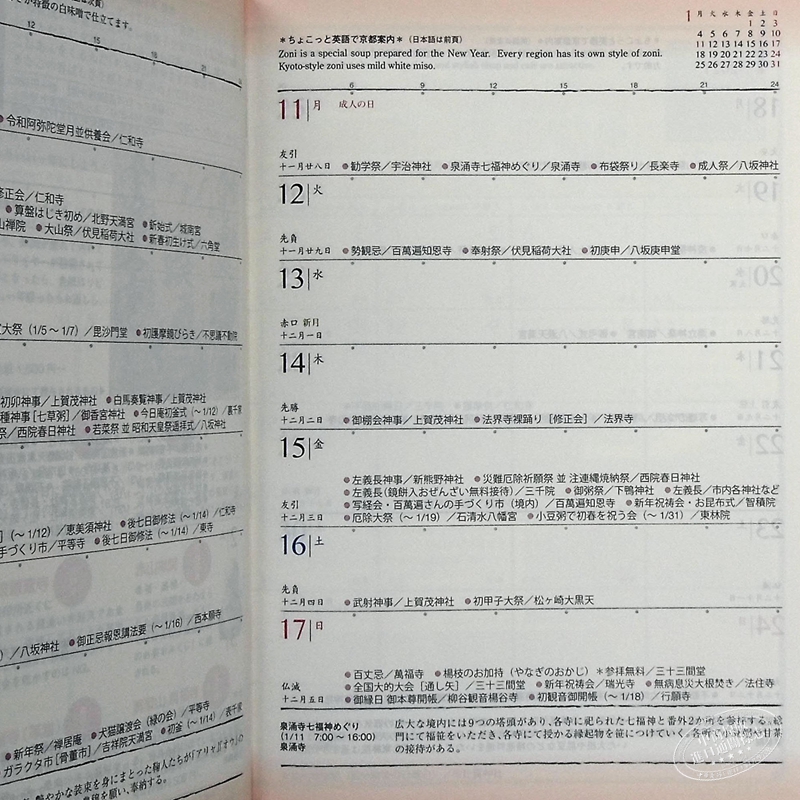 が特徴の白味噌で仕立てます。
12 15 18 21
令和阿弥陀堂月並供養会／仁和寺
修正会／仁和寺
●算盤はじき初め／北野天満宮 ●釿始式／城南宮
山禅院 ●大山祭／伏見稲荷大社 ●新春初生け式／六角堂
大祭（1/5～1/7）／毘沙門堂 ●初護摩鏡びらき／不思議不動院
初卯神事／上賀茂神社 ●白馬奏覧神事／上賀茂神社
種神事［七草粥］／御香宮神社 ●今日庵初釜式（～1/12）／裏千家
祭／西院春日神社 ●若菜祭 並 昭和天皇祭遥拝式／八坂神社
（～1/12）／恵美須神社 ●後七日御修法（～1/14）／仁和寺
手づくり市／平等寺 ●後七日御修法（～1/14）／東寺
／八坂神社 ●御正忌報恩講法要（～1/16）／西本願寺
●新年祭／禅居庵 ●犬猫譲渡会（緑の会）／平等寺
ガラクタ市［骨董市］／吉祥院天満宮 ●初釜（～1/14）／表千家
艶やかな装束を身にまとった鞠人たちが「アリャ」「オウ」の
を願い、奉納する。
＊ちょこっと英語で京都案内＊（日本語は前頁）
Zoni is a special soup prepared for the New Year. Every region has its own style of zoni.
Kyoto-style zoni uses mild white miso.
1月 火 水 木 金 土 日
1 2 3
4 5 6 7 8 9 10
11 12 13 14 15 16 17
18 19 20 21 22 23 24
25 26 27 28 29 30 31
6 9 12 15 18 21 24
11 月 成人の日
友引
十一月廿八日 ●勧学祭／宇治神社 ●泉涌寺七福神めぐり／泉涌寺 ●布袋祭り／長楽寺 ●成人祭／八坂神社
12 火
先負
十一月廿九日 ●勢観忌／百萬遍知恩寺 ●奉射祭／伏見稲荷大社 ●初庚申／八坂庚申堂
13 水
赤口 新月
十二月一日
14 木
先勝
十二月二日 ●御棚会神事／上賀茂神社 ●法界寺裸踊り［修正会］／法界寺
15 金
●左義長神事／新熊野神社 ●災難厄除祈願祭 並 注連縄焼納祭／西院春日神社
●左義長（鏡餅入おぜんざい無料接待）／三千院 ●御粥祭／下鴨神社 ●左義長／市内各神社など
友引 ●写経会・百萬遍さんの手づくり市（境内）／百萬遍知恩寺 ●新年祝祷会・お昆布式／智積院
十二月三日 ●厄除大祭（～1/19）／石清水八幡宮 ●小豆粥で初春を祝う会（～1/31）／東林院
16 土
先負
十二月四日 ●武射神事／上賀茂神社 ●初甲子大祭／松ヶ崎大黒天
17 日
●百丈忌／萬福寺 ●楊枝のお加持（やなぎのおかじ）＊参拝無料／三十三間堂
仏滅 ●全国大的大会［通し矢］／三十三間堂 ●新年祝祷会／瑞光寺 ●無病息災大根焚き／法住寺
十二月五日 ●御縁日 御本尊開帳／柳谷観音楊谷寺 ●初観音御開帳（～1/18）／行願寺
泉涌寺七福神めぐり
（1/11 7:00～16:00）
泉涌寺
広大な境内には9つの塔頭があり、各寺に祀られた七福神と番外2か所を参拝する。総
門にて福笹をいただき、各寺にて授かる縁起物を笹につけていく。各所で
の接待がある。